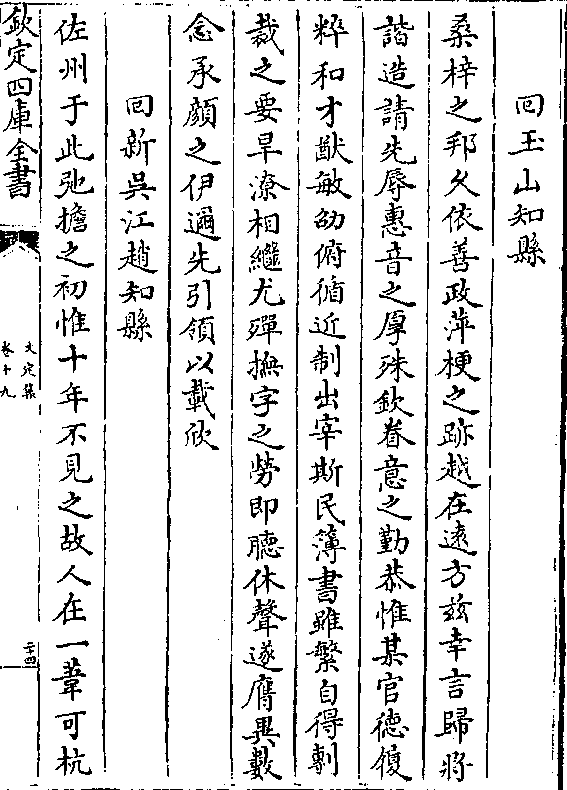 回玉山知縣
桑梓之邦久依善政萍梗之跡越在遠方兹幸言歸將
諧造請先辱惠音之厚殊欽眷意之勤恭惟某官德履
粹和才猷敏劭俯循近制出宰斯民簿書雖繁自得剸
裁之要旱潦相繼尤殫撫字之勞即聽休聲遂膺異數
念承顔之伊邇先引領以載欣
回新吳江趙知縣
佐州于此弛擔之初惟十年不見之故人在一葦可杭
欽定四庫全書
文定集
卷十九
二十四